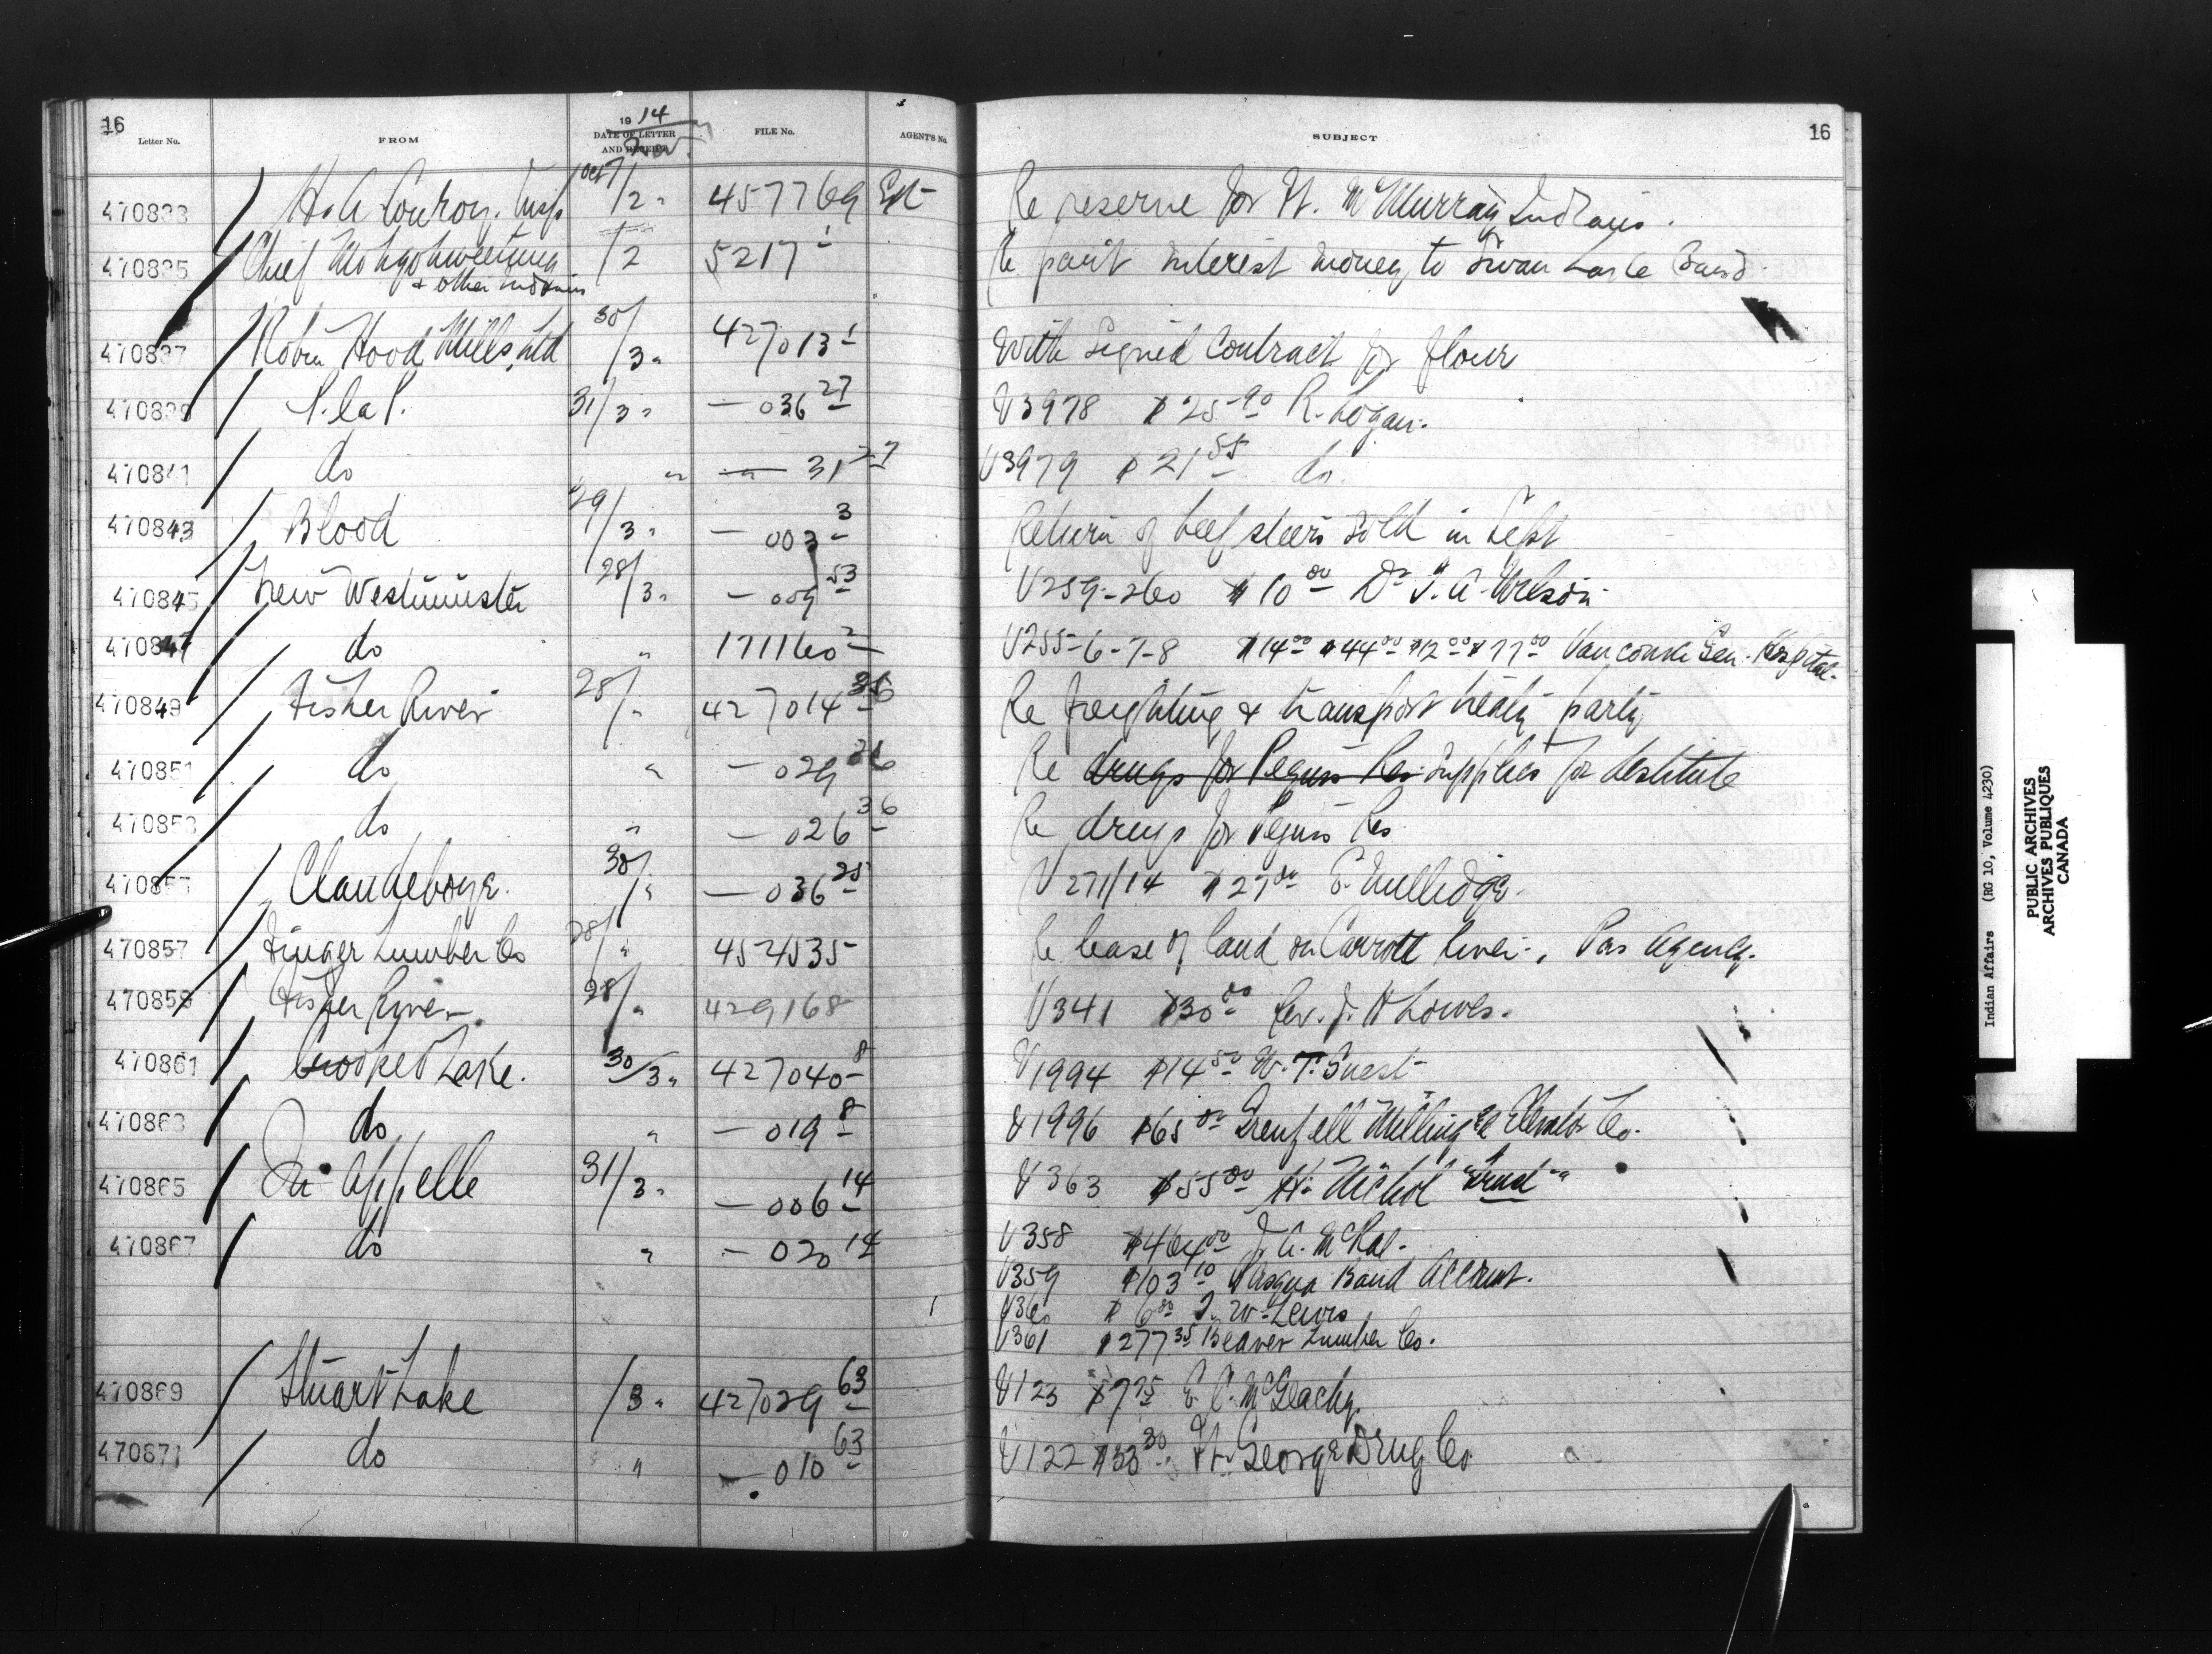 16
Letter No. FROM 1914 DATE OF LETTER AND RECEIPT Nov. FILE No. AGENT'S No. SUBJECT 16
470833 H. A. Conroy. Insp Oct 7/2 " 457769 Re reserve for Ft. McMurray Indians.
470835 Chief /2 5217 1 Re paint interest money to Swan Lake Band
& other indians
470837 Robin Hood Mills Ltd 30/3 " 427013 1 With signed Contract for flour
470839 P. la P. 31/3 " — 036 27 V3978 $25 90 R. Logan.
470841 do " — 31 27 V3979 $21 55 do.
470843 Blood 29/3 " — 003 3 Return of beef steers sold in Sept
470845 New Westminster 28/3 " — 009 53 V259-260 $10 00 Dr A. Wilson
470847 do " 171160 2 V255-6-7-8 $14 00 $44 00 $12 00 $77 00 Vancouver Gen. Hospital.
470849 Fisher River 28/ " 427014 36 Re freighting & transport treaty party
470851 do " — 029 36 Re drugs for Peguis Res Supplies for destitute
470853 do " — 026 36 Re drugs for Peguis Res
470855 Clandeboye. 30/ " — 036 25 V271/14 $27 00 E. Gullidge.
470857 Finger Lumber Co 28/ " 454535 Re lease of land on Carrott River, Pas Agency.
470859 Fisher River 28/ " 429168 V341 $30 00 Rev. J. H Lowes.
470861 Crooked Lake. 30/3 " 427040 8 V1994 $14 50 W. T. Guest
470863 do " — 019 8 V1996 $65 00 Grenfell Milling & Elevator Co.
470865 Qu'Appelle 31/3 " — 006 14 V363 $55 00 H. Nichol
470867 do " — 020 14 V358 $464 00 J. A. McRae.
V359 $103 10 Pasqua Band Account.
V360 $6 00 W. Lewis
V361 $277 35 Beaver Lumber Co.
470869 Stuart Lake /3 " 427029 63 V123 $7 75 E. C. McGeachy.
470871 do " — 010 63 V122 $33 30 Ft. George Drug Co
Indian Affairs (RG 10, Volume 4230)
PUBLIC ARCHIVES
ARCHIVES PUBLIQUES
CANADA